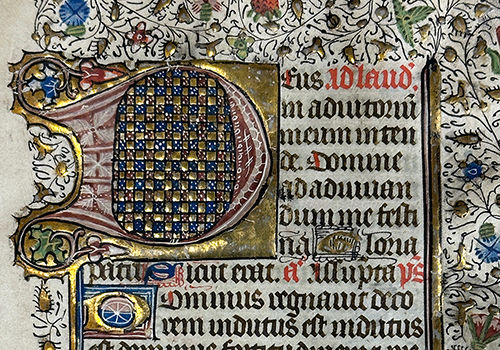 Deus Ad laud'.
in adiutoriū
meum inten
de Domine
ad adiuuan
dum me festi
na Gloria
patri Sicut erat. añ Assumpta pš
Dominus regnauit deco
rem indutus est indutus
est dominus